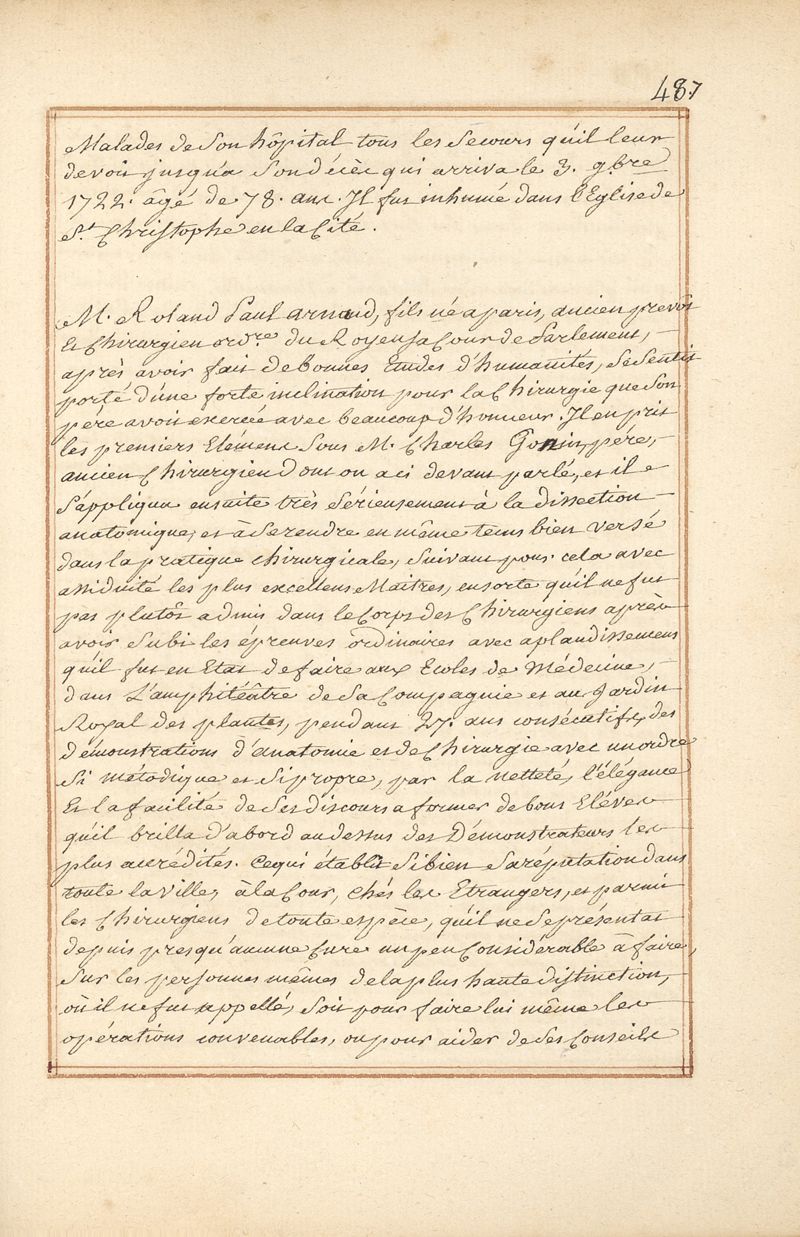 487
Malades de Son hôpital tous les Secours qu'il leur
devoit jusqu'a Son décèx qui arriva le 3. 9.bre
1722. âgé de 78. anx. Il fut inhumé dans l'Eglise de
S.t Christophe en la Cité.
M. Roland Paul Arnaud, fils né a paris, ancien prevôt
Et Chirurgien ord.re du Roy en Sa Cour de Parlement, —
après avoir fait de bonnes Etudes d'humanités, Se Sentit
porté d'une forte inclination pour la Chirurgie que Son
pére avoit exercée avec beaucoup d'honneur. Il en prit
les premiers Elémens Sous M. Charles Gonin, pére, —
ancien Chirurgien Dont on a ci devant parlé, et il
S'appliqua ensuite très Sérieusement à la dissection —
anatomique, et à Se rendre en même tems bien versé
dans la pratique chirurgicale, Suivant pour cela avec
assiduité les plus excellens Maitres, en sorte qu'il ne fut
pas plutôt admis dans le Corps des Chirurgiens après
avoir Subi les epreuves ordinaires avec aplaudissement
qu'il fut en Etat de faire aux Ecoles de Médecine, —
dans L'amphitéâtre de Sa Compagnie et au Jardin
Royal des plantes, pendant 27. ans consécutifs, des
démonstrations d'anatomie et de Chirurgie avec un ordre
Si métodique et Si propre, par la netteté, l'élégance
Et la facilité de Ses discours a former de bons Eléves
qu'il brilla d'abord au dessus des Démonstrateurs les
plus accrédités. Ce qui établit Si bien Sa réputation dans
toute la ville, à la Cour, chés les Etrangers, et parmi
les Chirurgiens de toute espèce, qu'il ne Se présentat
depuis presqu'aucune Cure un peu Considérable à faire,
Sur les personnes mêmes de la plus haute distinction,
où il ne fut appellé, Soit pour faire lui même les
opérations convenables, ou pour aider de Ses Conseils